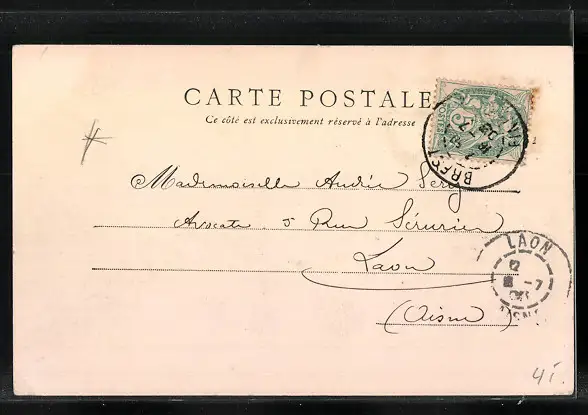 CARTE POSTALE
Ce côté est exclusivement réservé à l'adresse
Mademoiselle Andrée
Avocate 5 Rue Sérurier
Laon
(Aisne)
LAON
-7
41.